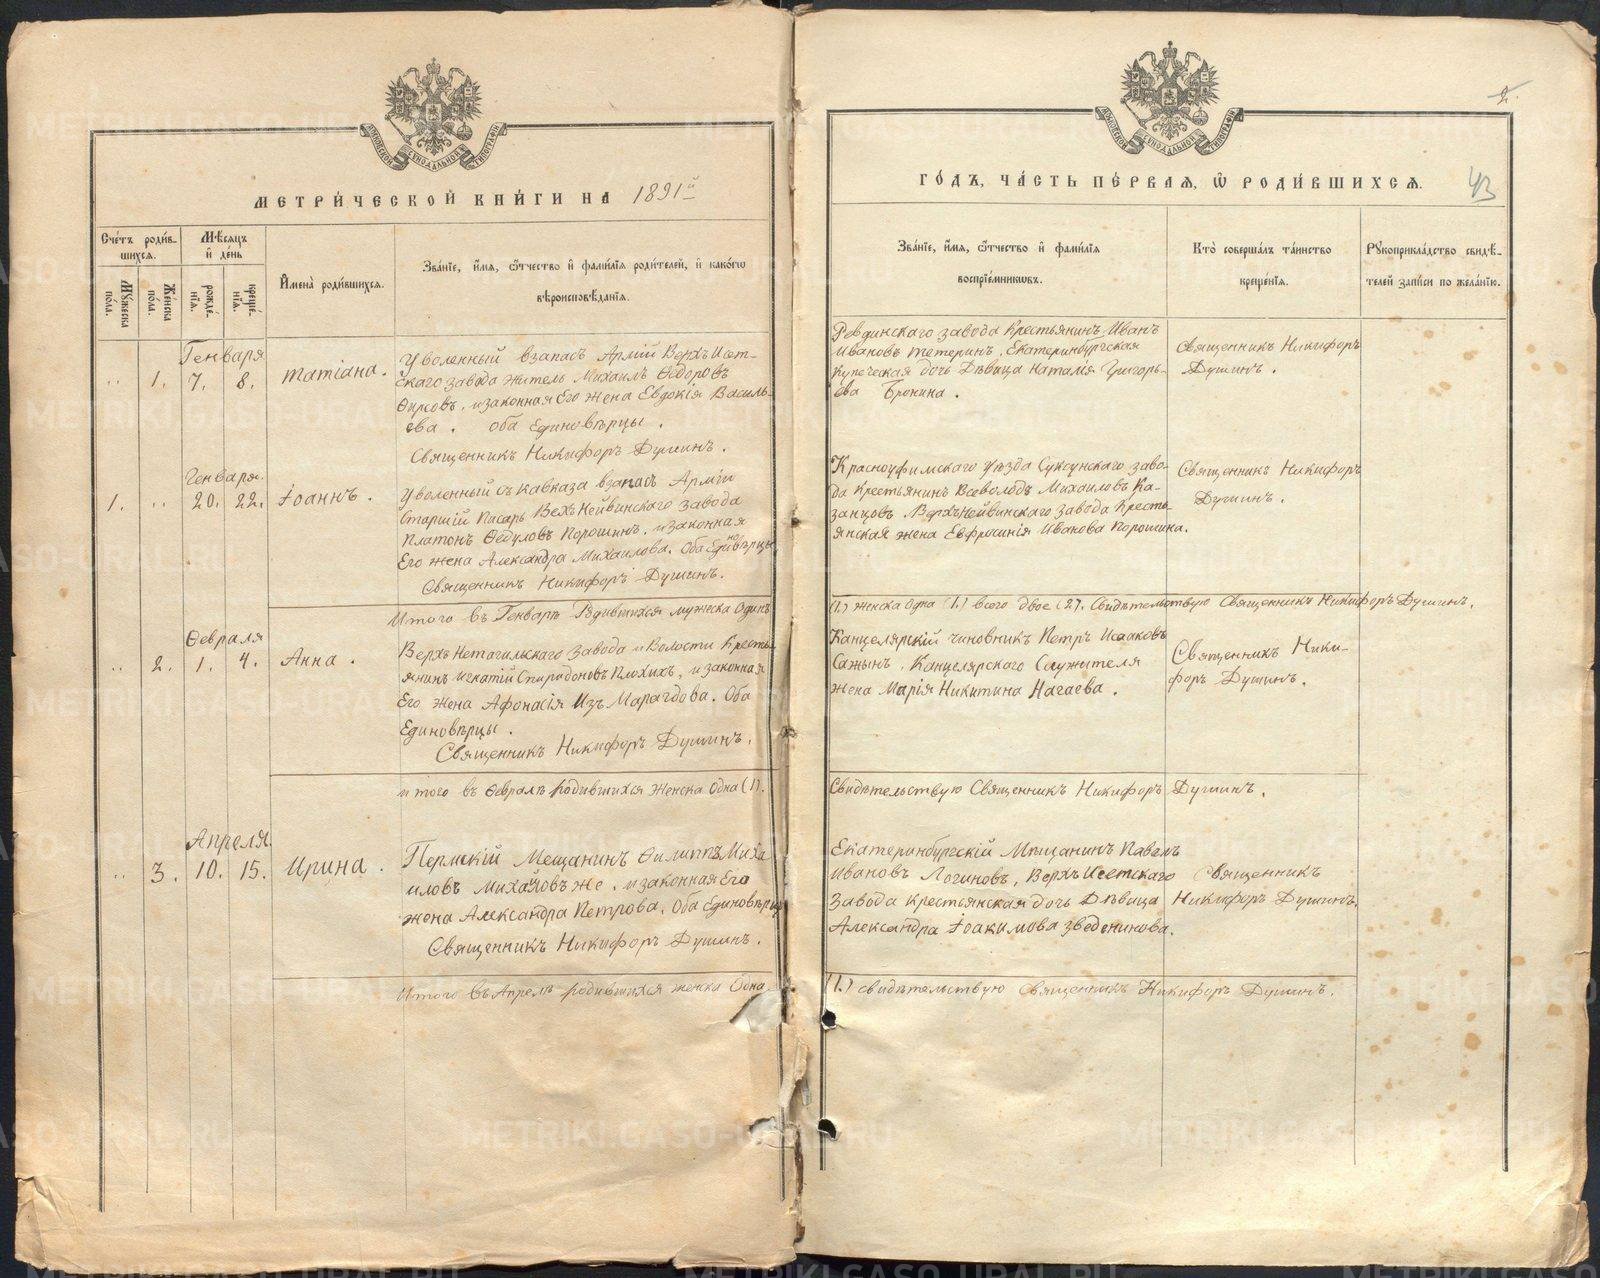 МОСКОВСКОЙ СѴНОДАЛЬНОЙ ТИПОГРАФІИ
МЕТРИ́ЧЕСКОЙ КНИ́ГИ НА 1891й
Счéтъ роди́вшихся.
Мѣ́сяцъ и҆ дéнь
Мꙋ́жеска пóла.
Жéнска пóла.
рождé-нїя.
крещé-нїя.
И҆менà роди́вшихся.
Звáнїе, и҆́мя, ѻ҆́тчество и҆ фами́лїѧ роди́телей, и҆ какóгѡ
вѣроисповѣ́данїя.
Генваря
„ 1. 7. 8. Татіана.
Уволенный взапасъ Арміи Верхъ Исет-
скаго завода житель Михаилъ Ѳедоровъ
Ѳирсовъ, и законная Его жена Евдокія Василь-
ева. оба Единовѣрцы.
Священникъ Никифоръ Душинъ.
Генваря.
1. „ 20. 22. Іоаннъ.
Уволенный съ Кавказа взапасъ Арміи
Старшій Писарь Вехъ Нейвинскаго завода
Платонъ Ѳедуловъ Порошинъ, и законная
Его жена Александра Михаилова. Оба Единовѣрцы
Священникъ Никифоръ Душинъ.
Итого въ Генварѣ Рдившихся мужеска Одинъ
Ѳевраля
„ 2. 1. 4. Анна.
Верхъ Нетагильскаго Завода и Волости Кресть-
янинъ Игнатій Спиридоновъ Плохихъ, и законная
Его жена Афонасія Изъ Марагдова. Оба
Единовѣрцы.
Священникъ Никифоръ Душинъ.
итого въ Ѳевралѣ родившихся женска Одна (1).
Апреля.
„ 3. 10. 15. Ирина.
Пермскій Мещанинъ Ѳилиппъ Миха
иловъ Михайловъ же, и законная Его
жена Александра Петрова. Оба Единовѣрцы
Священникъ Никифоръ Душинъ.
Итого въ Апрелѣ родившихся женска Одна
2.
МОСКОВСКОЙ СѴНОДАЛЬНОЙ ТИПОГРАФІИ
ГÓДЪ, ЧÁСТЬ ПÉРВАЯ, Ѿ РОДИ́ВШИХСЯ. 43
Звáнїе, и҆́мя, ѻ҆́тчество и҆ фами́лїѧ
воспрїéмникѡвъ.
Ктò совершáлъ тáинство
крещéнїя.
Рꙋкоприклáдство свидѣ́-
телей зáписи по желáнїю.
Ревдинскаго завода Крестьянинъ Иванъ
Ивановъ Тетеринъ, Екатеринбургская
Купеческая дочь Дѣвица Наталія Григорь-
ева Бронина.
Священникъ Никифоръ
Душинъ.
Красноуфимскаго уѣзда Суксунскаго заво-
да Крестьянинъ Всеволодъ Михаиловъ Ка-
занцовъ Верхънейвинскаго завода Кресть-
янская жена Евфросинія Иванова Порошина.
Священникъ Никифоръ
Душинъ.
(1.) женска Одна (1.) всего двое (2). Свидѣтельствую Священникъ Никифоръ Душинъ.
Канцелярскій чиновникъ Петръ Исааковъ
Сажынъ, Канцелярскаго Служителя
жена Марія Никитина Нагаева.
Священникъ Ники-
форъ Душинъ.
Свидѣтельствую Священникъ Никифоръ Душинъ.
Екатеринбургскій Мѣщанинъ Павелъ
Ивановъ Логиновъ, Верхъ Исетскаго
Завода Крестьянская дочь Дѣвица
Александра Іоакимова Зведенинова.
Священникъ
Никифоръ Душинъ.
(1.) свидѣтельствую Священникъ Никифоръ Душинъ.
METRIKI.GASO-URAL.RU